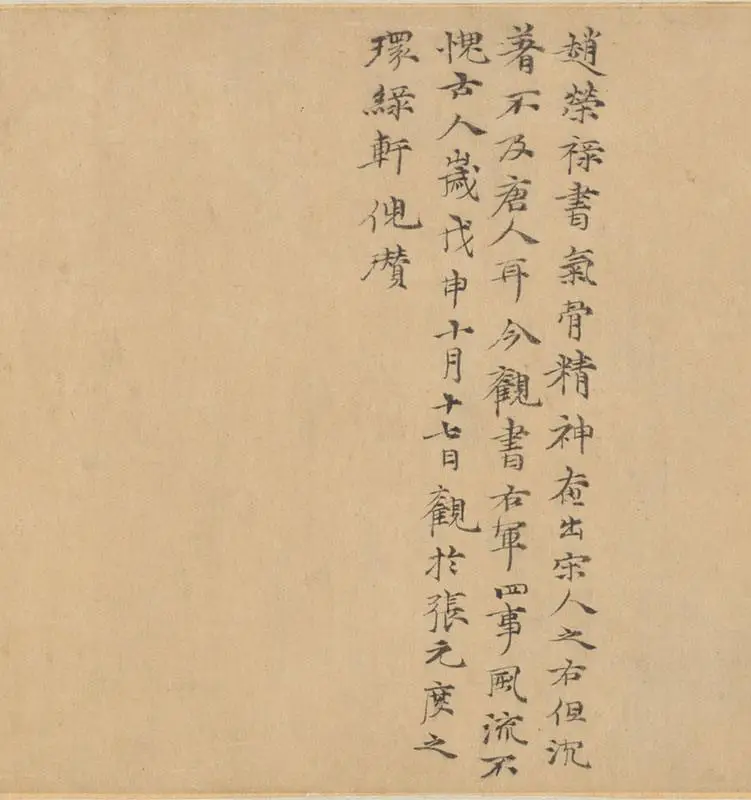 趙榮祿書氣骨精神在出宋人之右但沉
著不及唐人耳今觀書右軍四事風流不
愧古人歲戊申十月十七日觀於張元度之
環綠軒倪瓚